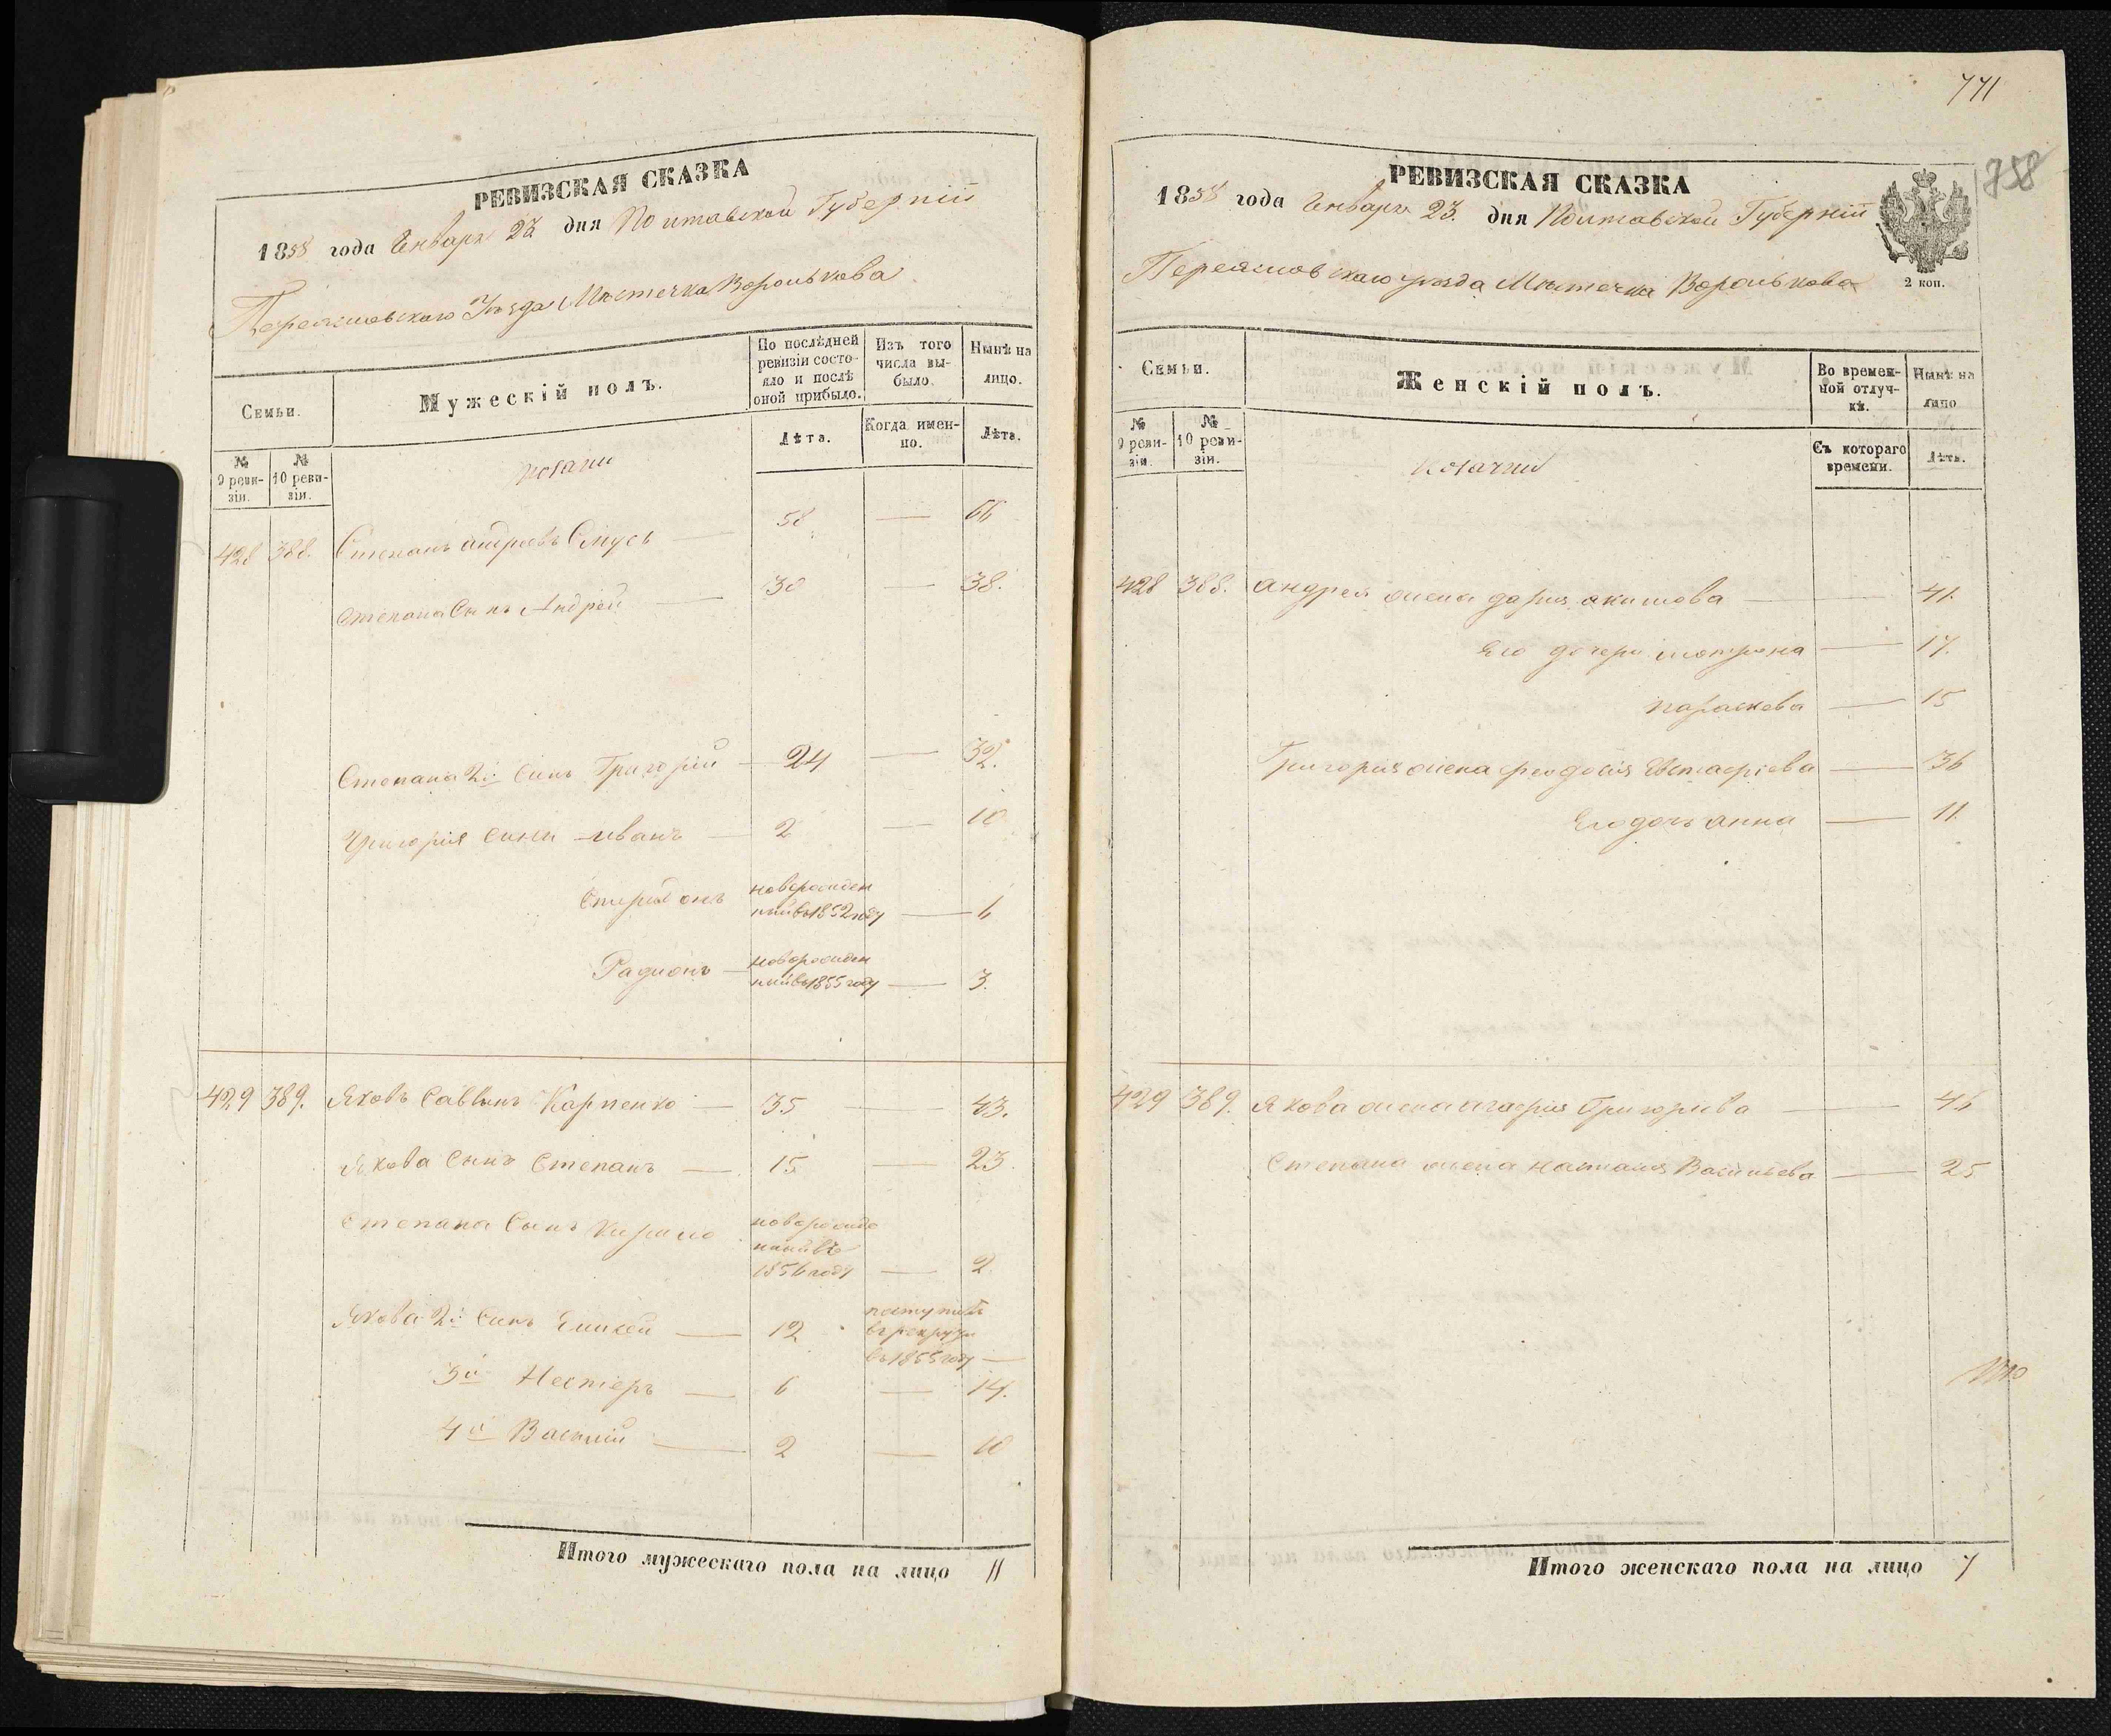 РЕВИЗСКАЯ СКАЗКА
1858 года Генваря 23 дня Полтавской Губерніи
Переяславского Уезда Местечка Воронькова
Семьи.
Мужескій полъ.
По последней ревизіи состояло и после оной прибыло.
Изъ того числа выбыло.
Ныне на лицо.
№ 9 ревизіи.
№ 10 ревизіи.
Лѣта.
Когда именно.
Лѣта.
Козаки
428 388. Степанъ андреевъ Смусь — 58 — 66
Степана Сынъ Андрей — 30 — 38.
Степана 2й Синъ Григорій — 24 — 32.
Григорія сини Иванъ — 2 — 10
Спиридонъ новорожденный въ 1852 году — 6
Радионъ — новорожденный въ 1855 году — 3.
429 389. Яковъ Саввинъ Карпенко — 35 — 43.
Якова Сынъ Степанъ — 15 — 23.
Степана Сынъ Кирило новорожденный въ 1856 году — 2
Якова 2й Синъ — 12 поступилъ въ рекруты въ 1855 году —
3й Нестеръ — 6 — 14.
4й Василій — 2 — 10
Итого мужескаго пола на лицо 11
771
758
РЕВИЗСКАЯ СКАЗКА
1858 года Генваря 23 дня Полтавской Губерніи
Переяславскаго уезда Местечка Воронькова
2 коп.
Семьи.
Женскій полъ.
Во временной отлучкѣ.
Нынѣ на лицо
№ 9 ревизіи.
№ 10 ревизіи.
Съ котораго времени.
Лѣта.
Козачки
428 388. Андрея жена дария акимова — 41.
Его дочери мотрона — 17.
параскева — 15
Григорія жена феодосія Евстафіева — 36
Его дочь анна — 11.
429 389. Якова жена агафія Григоріева — 46
Степана жена наталия Васильева — 25
Итого женскаго пола на лицо 7